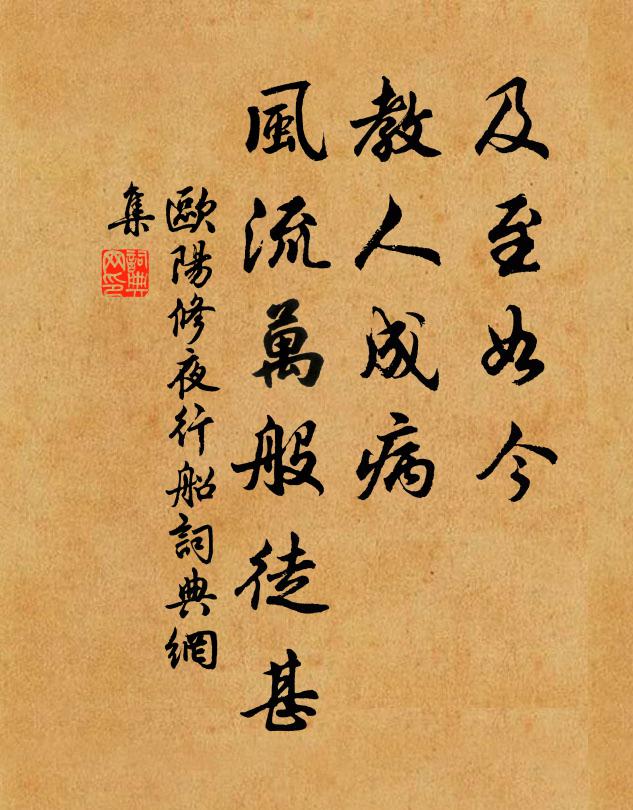 及至如今
教人成病
風流萬般徒甚
歐陽修夜行船詞典網
集
詞典
网印